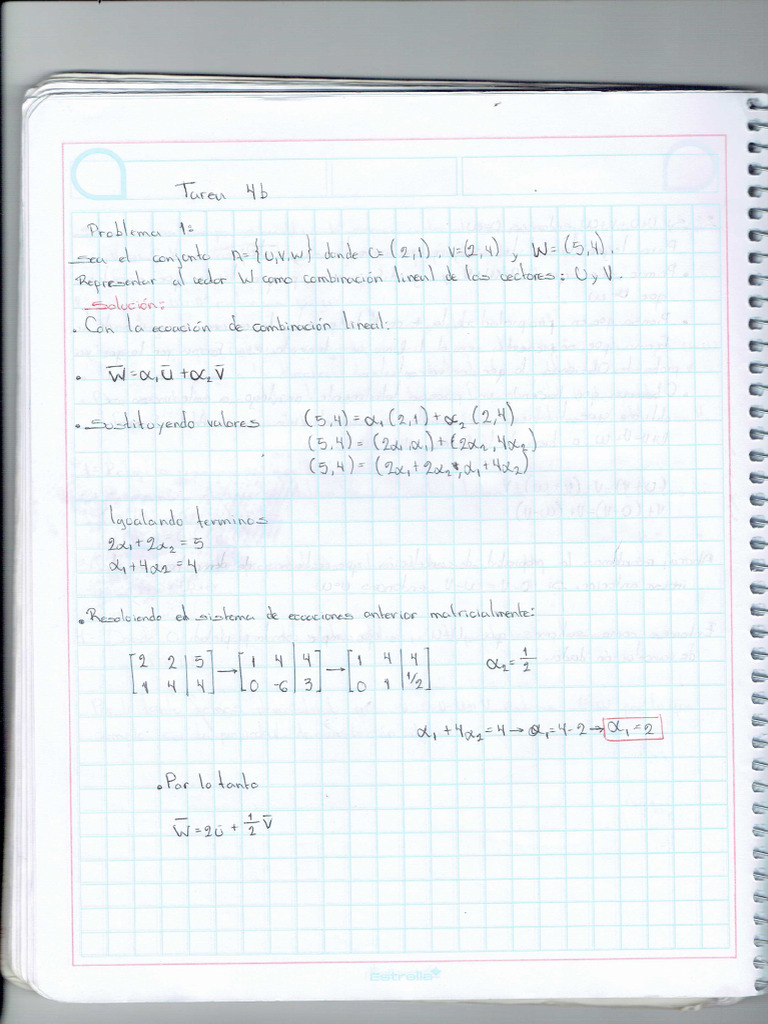 Tarea 4b
Problema 1:
sea el conjunto A={U,V,W} donde U=(2,1), V=(2,4) y W=(5,4).
Representar al vector W como combinación lineal de los vectores: U y V.
Solución:
• Con la ecuación de combinación lineal:
• W̅=α₁u̅+α₂V̅
• Sustituyendo valores (5,4)=α₁(2,1)+α₂(2,4)
(5,4)=(2α₁,α₁)+(2α₂,4α₂)
(5,4)=(2α₁+2α₂,α₁+4α₂)
Igualando terminos
2α₁+2α₂=5
α₁+4α₂=4
• Resolviendo el sistema de ecuaciones anterior matricialmente:
[2 2 | 5] → [1 4 | 4] → [1 4 | 4] α₂=1/2
[1 4 | 4] [0 -6 | 3] [0 1 | 1/2]
α₁+4α₂=4→α₁=4-2→α₁=2
• Por lo tanto
W̅=2u̅+1/2 V̅
Estrella